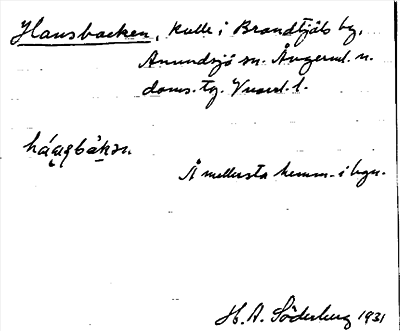 Hansbacken, kulle i Brandtjäls by,
Anundsjö sn. Ångerml. n.
doms. tg. Vnorrl. l.
Å mellersta hemm. i byn.
H. A. Söderberg 1931